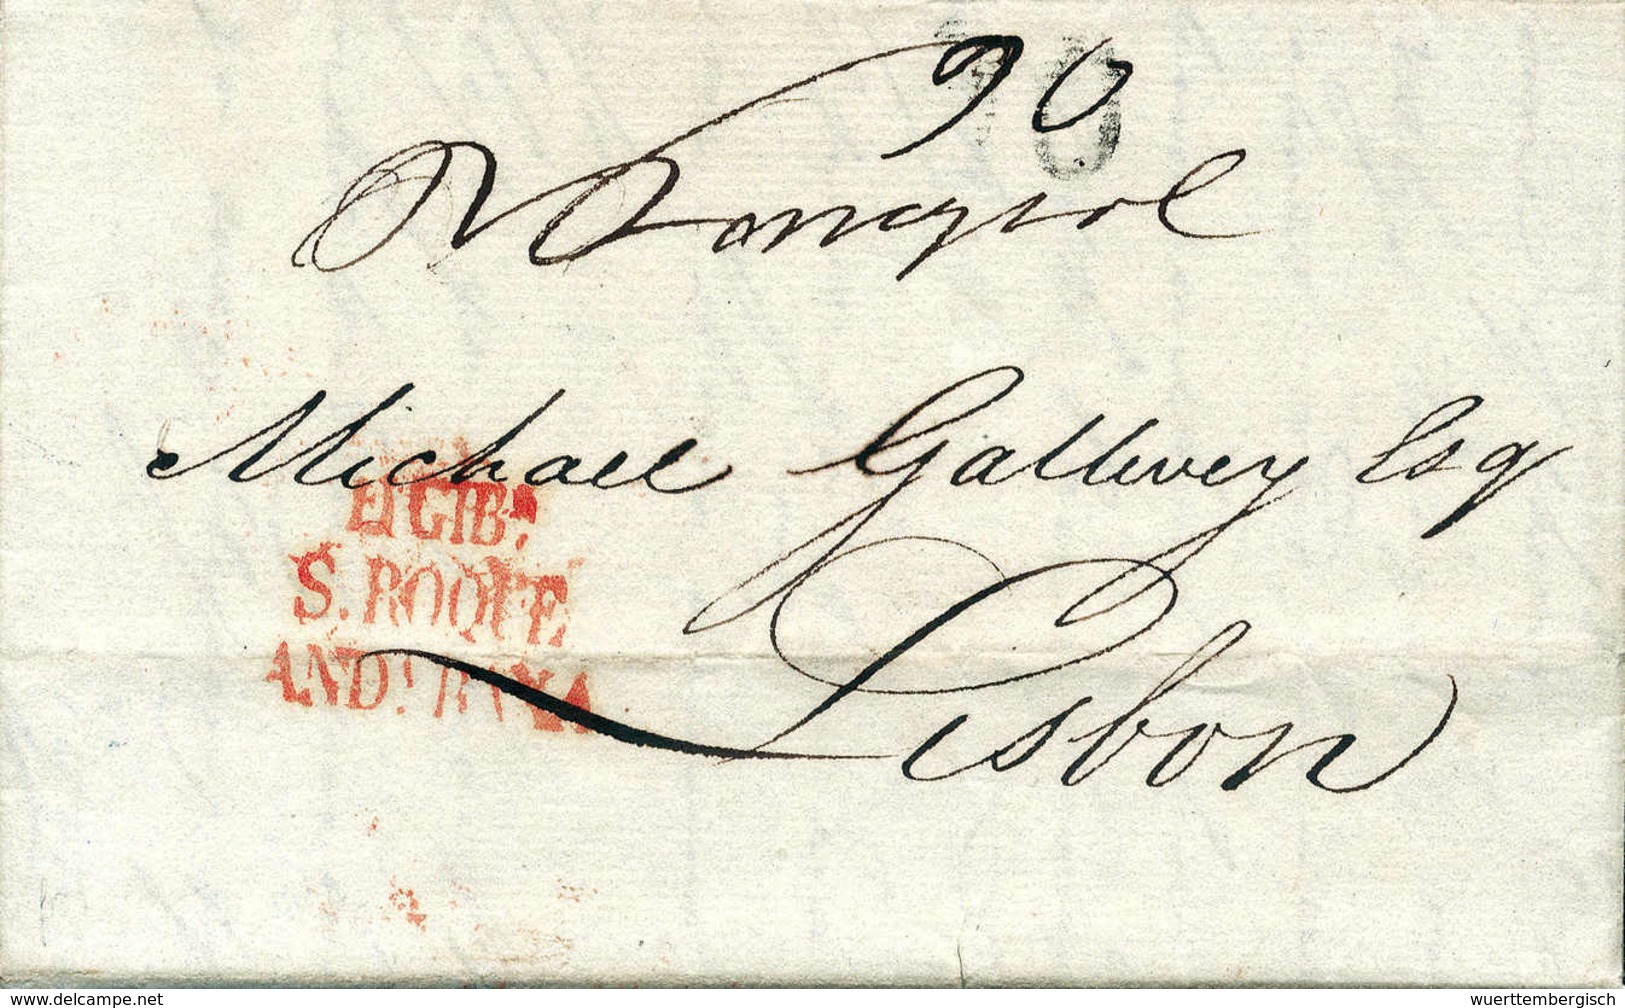 90
Michael Gallwey Esq
Lisbon
Eº GIBº.
S. ROQUE
ANDª BAXA
www.delcampe.net
wuerttembergisch